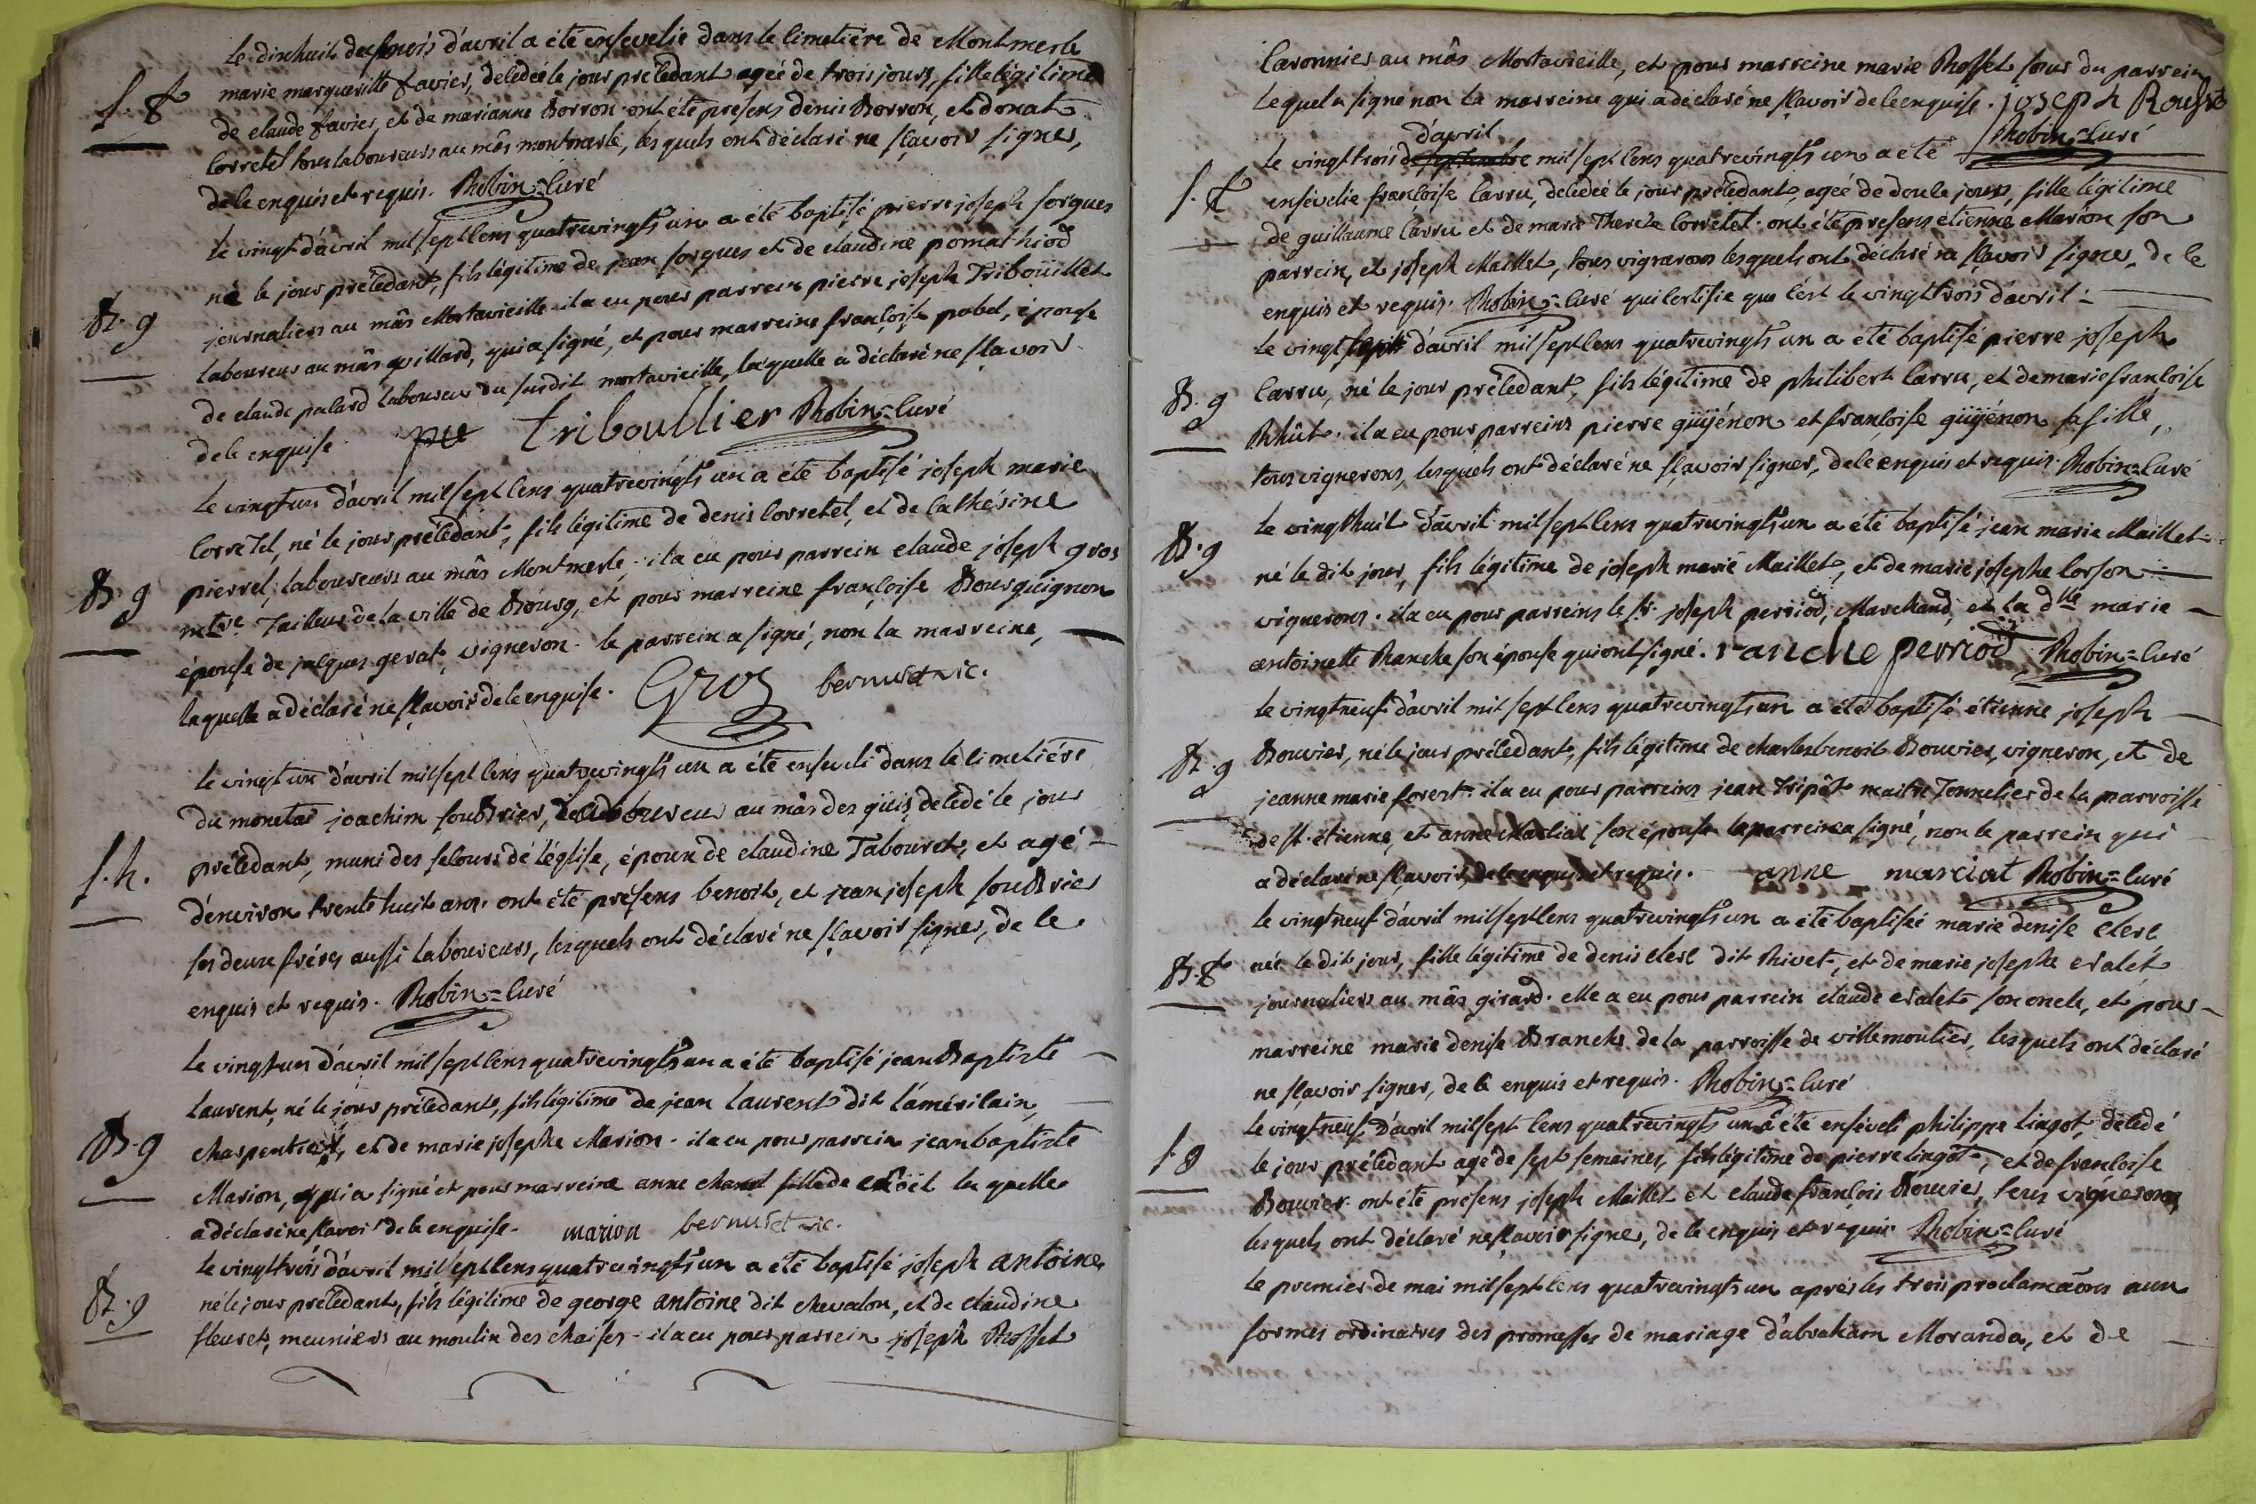 Le dixhuit du mois d'avril a été ensevelie dans le cimetière de Montmerle
marie margueritte favier, decedée le jour précédant agée de trois jours, fille légitime
S. f
de claude favier, et de marianne Borron. ont été presens denis Borron, et donat
Corretel tous laboureurs au mâs montmerle, lesquels ont déclaré ne sçavoir signer,
de ce enquis et requis. Robin=curé
Le vingt d'avril mil sept cens quatrevingts un a été baptisé pierre joseph sorgues
né le jour précédant, fils légitime de jean sorgues et de claudine pomathiod
B. g
journaliers au mâs Mortavieille. il a eu pour parrein pierre joseph Triboüillet
laboureur au mâs quillard, qui a signé, et pour marreine françoise pobel, épouse
de claude palard laboureur du susdit mortavieille, laquelle a déclaré ne sçavoir
de ce enquise. pre triboullier Robin=curé
Le vingt un d'avril mil sept cens quatrevingts un a été baptisé joseph marie
Corretel, né le jour précédant, fils légitime de denis Corretel, et de cathérine
pierrel, laboureurs au mâs Montmerle. il a eu pour parrein claude joseph gros
B. g
mtre. Tailleur de la ville de Bourg, et pour marreine françoise Bourguignon
épouse de jacques gerat, vigneron. le parrein a signé, non la marreine,
laquelle a déclaré ne sçavoir de ce enquise. Gros bernuset vic.
Le vingt un d'avril mil sept cens quatrevingts un a été enseveli dans le cimetière
du monetai joachim soudrier, laboureur au mâs des güis, decédé le jour
S. h.
précédant, muni des secours de l'église, époux de claudine Tabouret, et agé
d'environ trente huit ans. ont été présens benoit, et jean joseph soudrier
ses deux fréres aussi laboureurs, lesquels ont déclaré ne sçavoir signer, de ce
enquis et requis. Robin=curé
Le vingt un d'avril mil sept cens quatrevingts un a été baptisé jean Baptiste
Laurent, né le jour précédant, fils légitime de jean Laurent dit l'américain,
B. g
charpentier, et de marie josephe Marion. il a eu pour parrein jean baptiste
Marion, qui a signé et pour marreine anne chanel fille de laquelle
a déclaré ne sçavoir de ce enquise. marion bernuset vic.
Le vingt trois d'avril mil sept cens quatrevingts un a été baptisé joseph antoine
B. g
né le jour précédant, fils légitime de george antoine dit chevalon, et de claudine
fleuret, meuniers au moulin des chaises. il a eu pour parrein joseph Rosset
Caronnier au mâs Mortavieille, et pour marreine marie Rosset sœur du parrein
lequel a signé non la marreine qui a déclaré ne sçavoir de ce enquise. joseph Rousset
d'avril
Robin=curé
Le vingt trois de septembre mil sept cens quatrevingts un a été
S. f
ensevelie françoise Carru, decedée le jour précédant, agée de douze jours, fille légitime
de guillaume Carru et de marie Therese Corretel. ont été presens etienne Marion son
parrein, et joseph Maillet, tous vignerons lesquels ont déclaré ne sçavoir signer, de ce
enquis et requis. Robin=curé qui certifie que c'est le vingt trois d'avril.
Le vingt sept d'avril mil sept cens quatrevingts un a été baptisé pierre joseph
B. g
Carru, né le jour précédant, fils légitime de philibert Carru, et de marie françoise
Rhüt. il a eu pour parreins pierre güyénon et françoise güyénon sa fille,
tous vignerons, lesquels ont déclaré ne sçavoir signer, de ce enquis et requis. Robin=curé
Le vingt huit d'avril mil sept cens quatrevingts un a été baptisé jean marie Maillet
B. g
né le dit jour, fils légitime de joseph marie Maillet, et de marie josephe Corson
vignerons. il a eu pour parreins le sr. joseph perriod, Marchand, et la dlle marie
antoinette Ranche son épouse qui ont signé. ranche perriod Robin=curé
Le vingt neuf d'avril mil sept cens quatrevingts un a été baptisé étienne joseph
B. g
Bouvier, né le jour précédant, fils légitime de charles benoit Bouvier, vigneron, et de
jeanne marie forest. il a eu pour parreins jean Tripôt maitre Tonnelier de la parroisse
de st. étienne, et anne Marciat son épouse la marreine a signé, non le parrein qui
a déclaré ne sçavoir, de ce enquis et requis. anne marciat Robin=curé
Le vingt neuf d'avril mil sept cens quatrevingts un a été baptisée marie denise Clerc
B. f
née le dit jour, fille légitime de denis Clerc dit Rivet, et de marie josephe evalet
journaliers au mâs girard. elle a eu pour parrein claude evalet son oncle, et pour
marreine marie denise Branche de la parroisse de villemoutier, lesquels ont déclaré
ne sçavoir signer, de ce enquis et requis. Robin=curé
Le vingt neuf d'avril mil sept cens quatrevingts un a été enséveli philippe lingot, décedé
S. g
le jour précédant agé de sept semaines, fils légitime de pierre lingot, et de françoise
Bouvier. ont été presens joseph Maillet et claude françois Bouvier, tous vignerons
lesquels ont déclaré ne sçavoir signer, de ce enquis et requis Robin=curé
Le premier de mai mil sept cens quatrevingts un après les trois proclamaõns aux
formes ordinaires des promesses de mariage d'abraham Moranda, et de